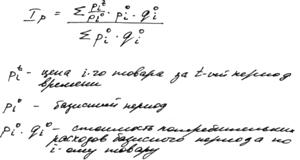 I_p = (Σ (p_i^t / p_i^0) · p_i^0 · q_i^0) / (Σ p_i^0 · q_i^0)
p_i^t - цена i-го товара за t-ый период
времени
p_i^0 - базисный период
p_i^0 · q_i^0 - стоимость потребительских
расходов базисного периода по
i-ому товару